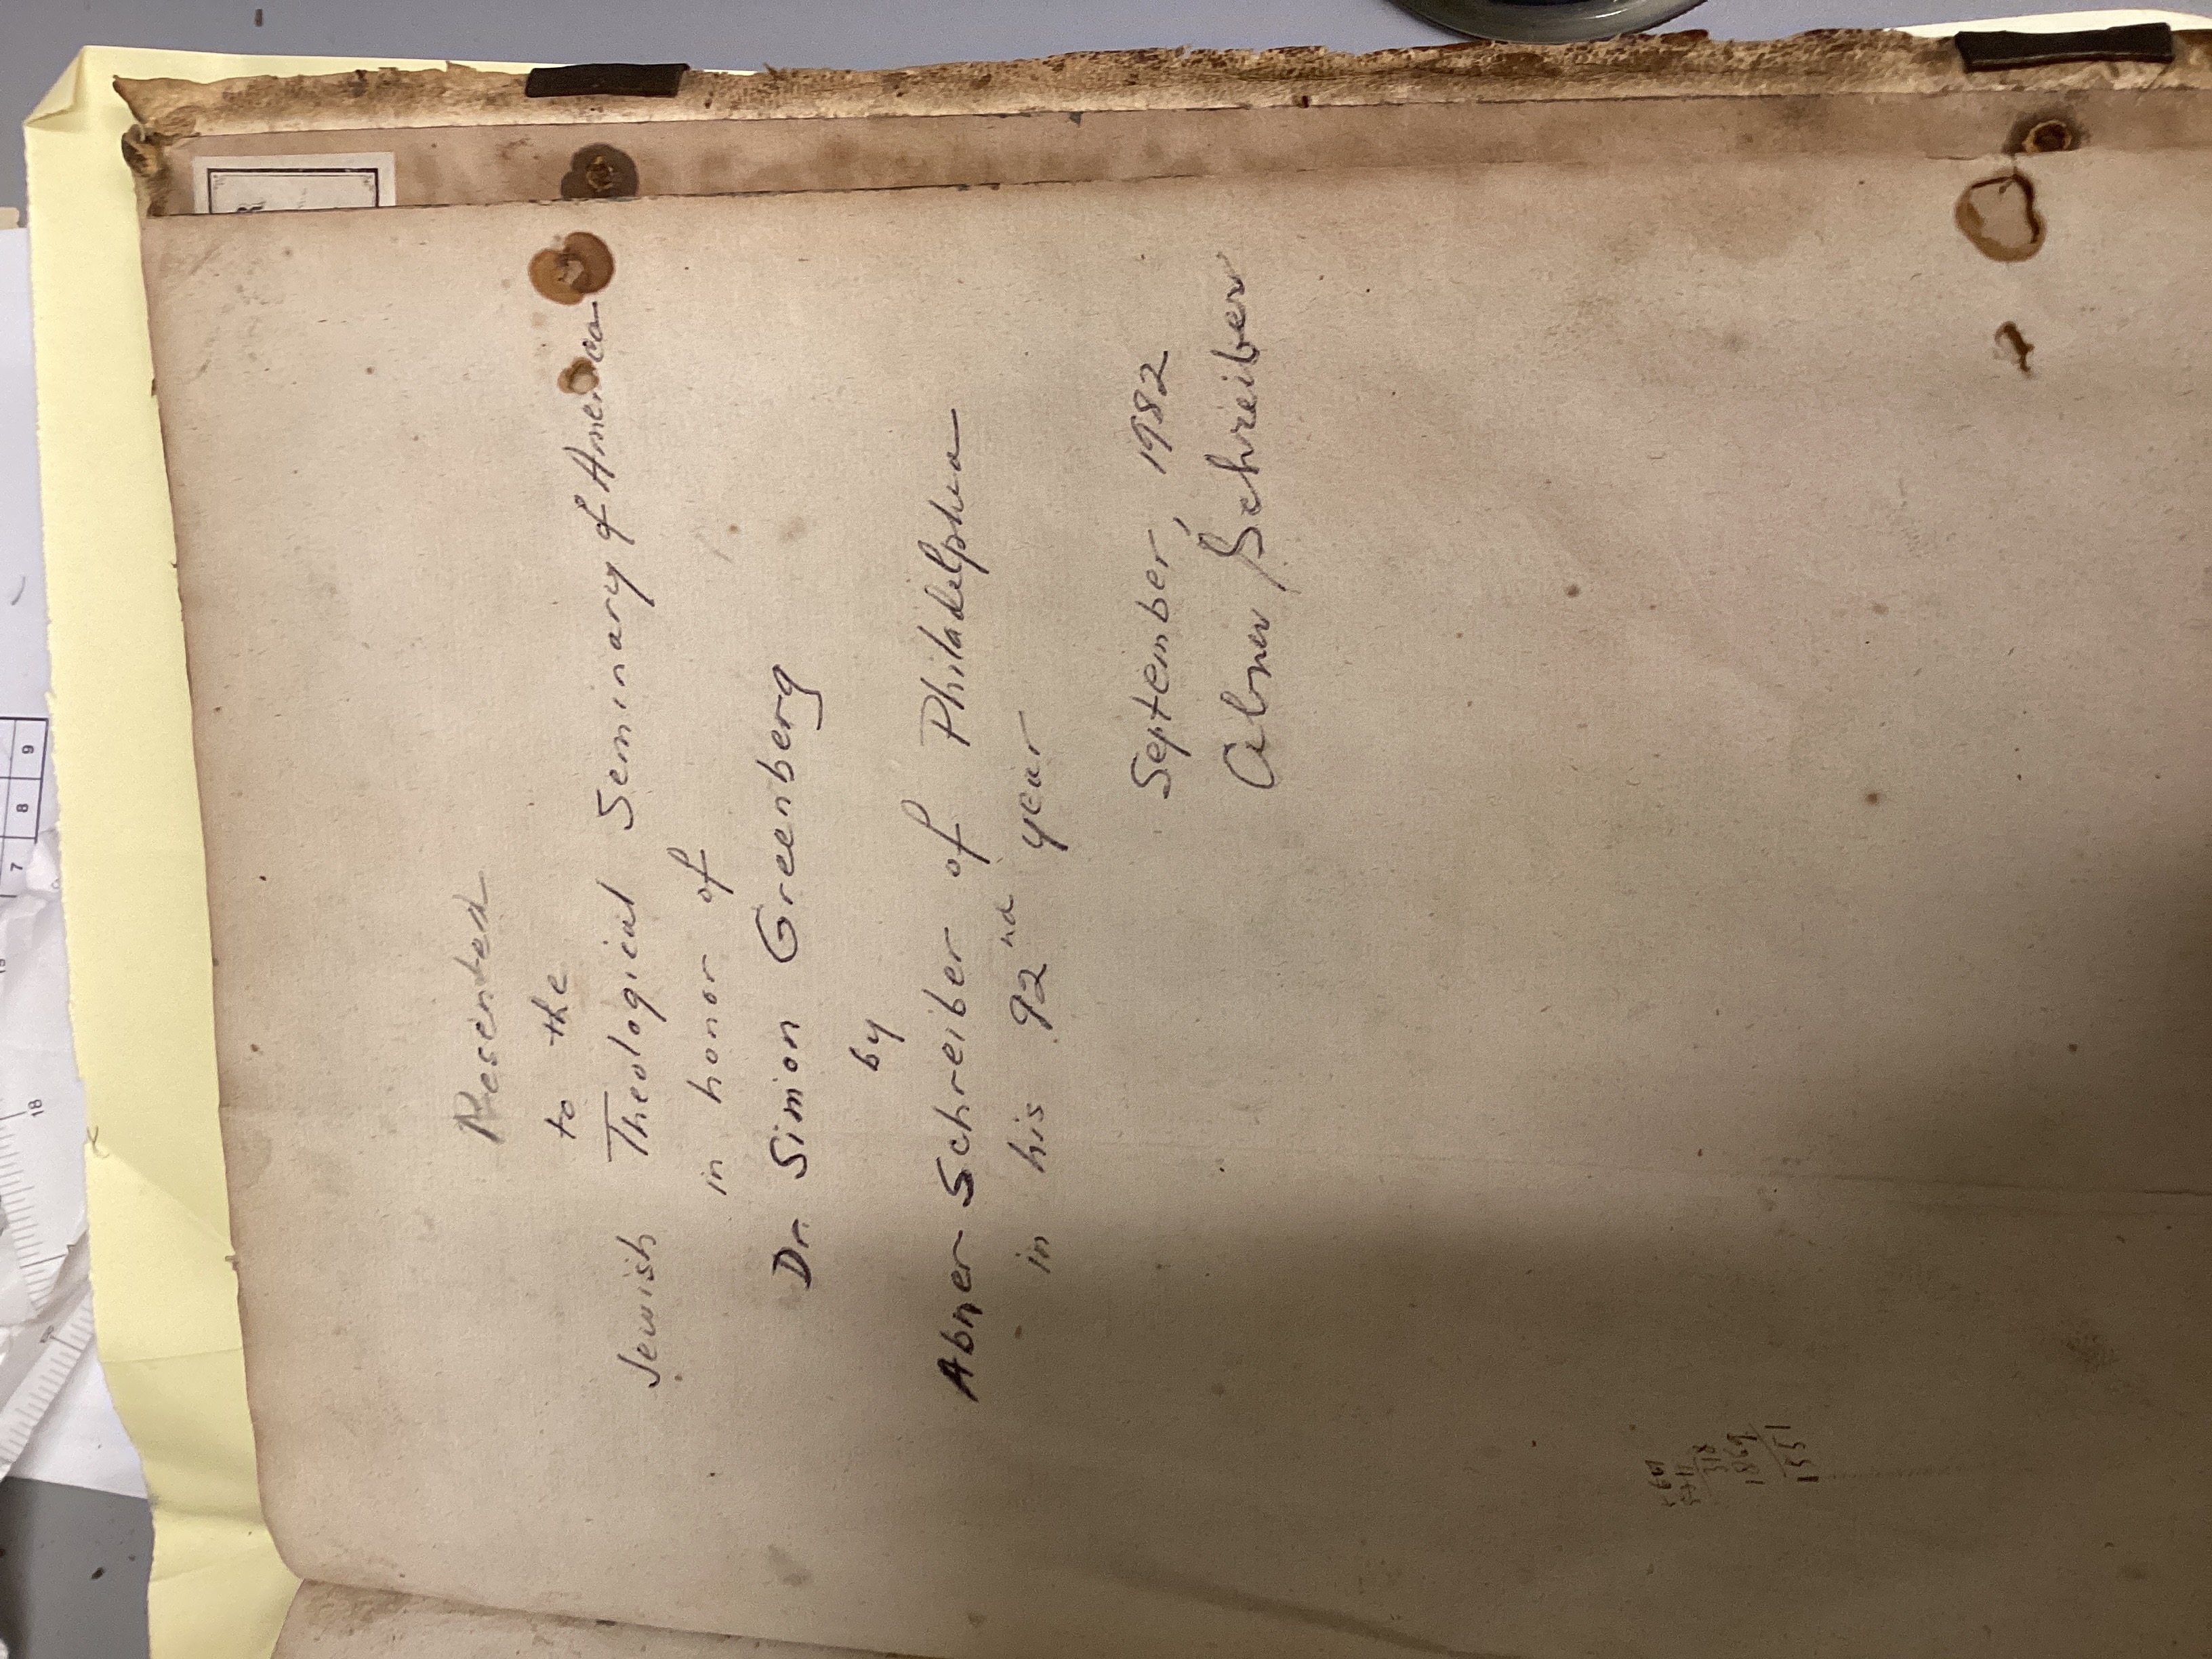 Presented
to the
Jewish Theological Seminary of America
in honor of
Dr. Simion Greenberg
by
Abner Schreiber of Philadelphia
in his 92nd year
September, 1982
Abner Schreiber
318
1869
1551
7 8 9
18